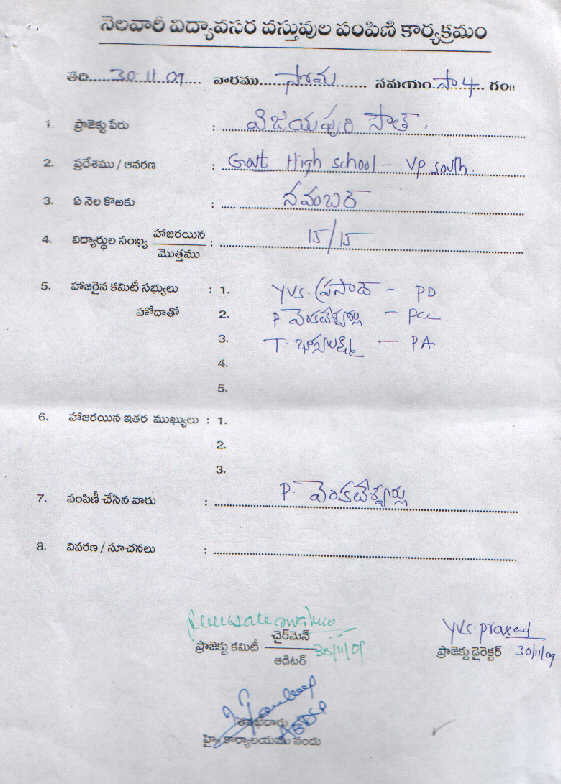 నెలవారీ విద్యావసర వస్తువుల పంపిణి కార్యక్రమం
తేది..... 30.11.09 ..... వారము ..... సోమ ..... సమయం సా 4 గం॥
1. ప్రాజెక్టు పేరు : విజయపురి సౌత్.
2. ప్రదేశము / ఆవరణ : Govt High school - VP south.
3. ఏ నెల కొఱకు : నవంబర్
4. విద్యార్థుల సంఖ్య హాజరయిన / మొత్తము : 15/15
5. హాజరైన కమిటీ సభ్యులు : 1. YVS. ప్రసాద్ - PD
హోదాతో 2. P వెంకటేశ్వర్లు - PCC
3. T - PA
4.
5.
6. హాజరయిన ఇతర ముఖ్యులు : 1.
2.
3.
7. పంపిణీ చేసిన వారు : P. వెంకటేశ్వర్లు
8. వివరణ / సూచనలు :
చైర్మెన్ YVS prasad
ప్రాజెక్టు కమిటీ 30/11/09 ప్రాజెక్టు డైరెక్టర్ 30/11/09
ఆడిటర్
హై కార్యాలయము నందు